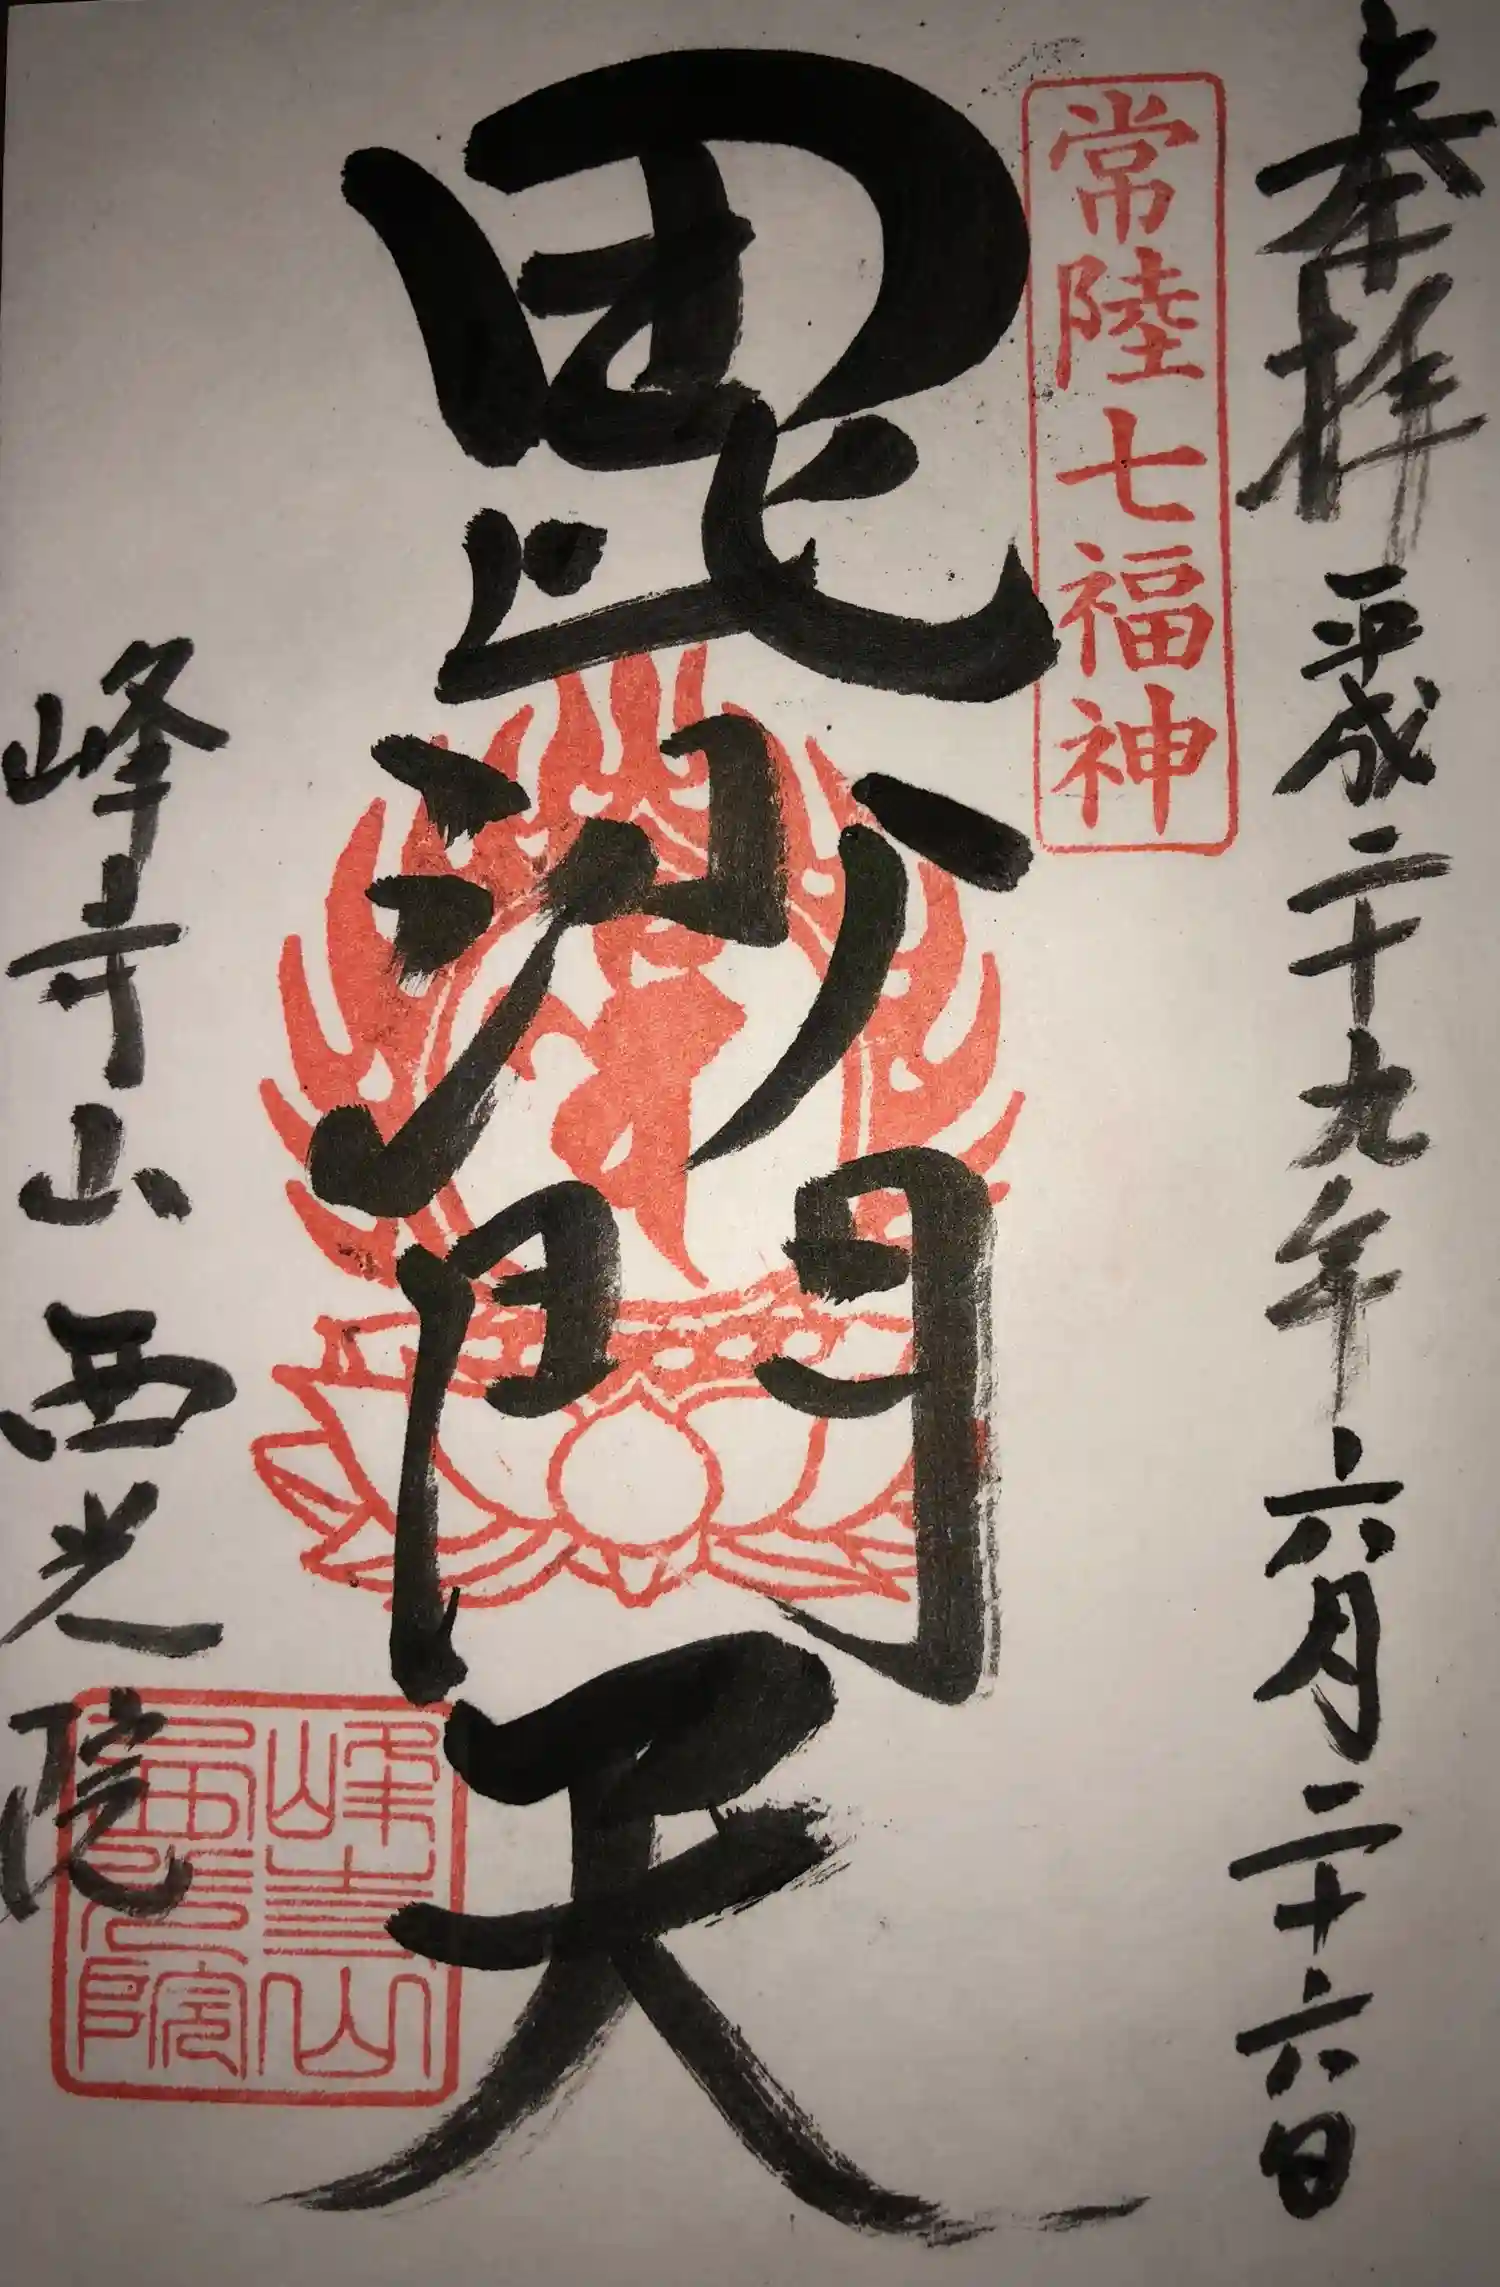 奉拝 平成二十九年六月二十六日
常陸七福神
毘沙門天
峰寺山 西光院
峰寺山
西光院